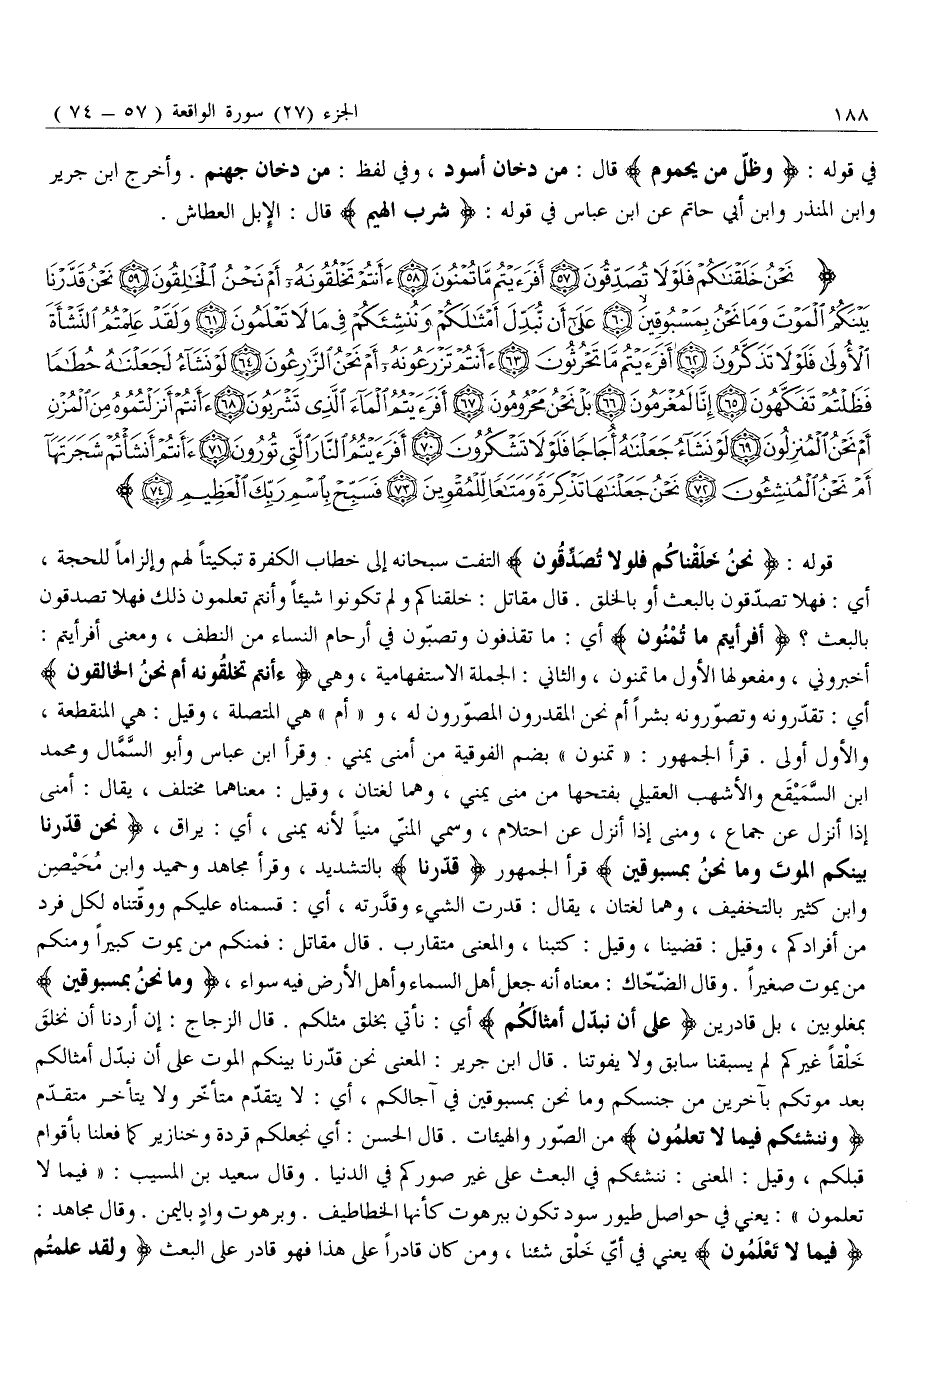 ١٨٨ الجزء (٢٧) سورة الواقعة ( ٥٧ – ٧٤ )
في قوله : ﴿ وظلّ من يحموم ﴾ قال : من دخان أسود ، وفي لفظ : من دخان جهنم . وأخرج ابن جرير
وابن المنذر وابن أبي حاتم عن ابن عباس في قوله : ﴿ شرب الهيم ﴾ قال : الإبل العطاش .
﴿ نَحْنُ خَلَقْنَٰكُمْ فَلَوْلَا تُصَدِّقُونَ ۝٥٧ أَفَرَءَيْتُم مَّا تُمْنُونَ ۝٥٨ ءَأَنتُمْ تَخْلُقُونَهُۥٓ أَمْ نَحْنُ ٱلْخَٰلِقُونَ ۝٥٩ نَحْنُ قَدَّرْنَا
بَيْنَكُمُ ٱلْمَوْتَ وَمَا نَحْنُ بِمَسْبُوقِينَ ۝٦٠ عَلَىٰٓ أَن نُّبَدِّلَ أَمْثَٰلَكُمْ وَنُنشِئَكُمْ فِى مَا لَا تَعْلَمُونَ ۝٦١ وَلَقَدْ عَلِمْتُمُ ٱلنَّشْأَةَ
ٱلْأُولَىٰ فَلَوْلَا تَذَكَّرُونَ ۝٦٢ أَفَرَءَيْتُم مَّا تَحْرُثُونَ ۝٦٣ ءَأَنتُمْ تَزْرَعُونَهُۥٓ أَمْ نَحْنُ ٱلزَّٰرِعُونَ ۝٦٤ لَوْ نَشَآءُ لَجَعَلْنَٰهُ حُطَٰمًا
فَظَلْتُمْ تَفَكَّهُونَ ۝٦٥ إِنَّا لَمُغْرَمُونَ ۝٦٦ بَلْ نَحْنُ مَحْرُومُونَ ۝٦٧ أَفَرَءَيْتُمُ ٱلْمَآءَ ٱلَّذِى تَشْرَبُونَ ۝٦٨ ءَأَنتُمْ أَنزَلْتُمُوهُ مِنَ ٱلْمُزْنِ
أَمْ نَحْنُ ٱلْمُنزِلُونَ ۝٦٩ لَوْ نَشَآءُ جَعَلْنَٰهُ أُجَاجًا فَلَوْلَا تَشْكُرُونَ ۝٧٠ أَفَرَءَيْتُمُ ٱلنَّارَ ٱلَّتِى تُورُونَ ۝٧١ ءَأَنتُمْ أَنشَأْتُمْ شَجَرَتَهَآ
أَمْ نَحْنُ ٱلْمُنشِـُٔونَ ۝٧٢ نَحْنُ جَعَلْنَٰهَا تَذْكِرَةً وَمَتَٰعًا لِّلْمُقْوِينَ ۝٧٣ فَسَبِّحْ بِٱسْمِ رَبِّكَ ٱلْعَظِيمِ ۝٧٤ ﴾
قوله : ﴿ نحنُ خَلَقْناكُم فلولا تُصَدِّقُون ﴾ التفت سبحانه إلى خطاب الكفرة تبكيتاً لهم وإلزاماً للحجة ،
أي : فهلا تصدّقون بالبعث أو بالخلق . قال مقاتل : خلقناكم ولم تكونوا شيئاً وأنتم تعلمون ذلك فهلا تصدقون
بالبعث ؟ ﴿ أفرأيتم ما تُمْنُون ﴾ أي : ما تقذفون وتصبّون في أرحام النساء من النطف ، ومعنى أفرأيتم :
أخبروني ، ومفعولها الأول ما تمنون ، والثاني : الجملة الاستفهامية ، وهي ﴿ ءأنتم تخلقُونه أم نحنُ الخالقون ﴾
أي : تقدّرونه وتصوّرونه بشراً أم نحن المقدرون المصوّرون له ، و « أم » هي المتصلة ، وقيل : هي المنقطعة ،
والأول أولى . قرأ الجمهور : « تمنون » بضم الفوقية من أمنى يمني . وقرأ ابن عباس وأبو السَّمَّال ومحمد
ابن السَّمَيْقَع والأشهب العقيلي بفتحها من منى يمني ، وهما لغتان ، وقيل : معناهما مختلف ، يقال : أمنى
إذا أنزل عن جماع ، ومنى إذا أنزل عن احتلام ، وسمي المنيّ منياً لأنه يمنى ، أي : يراق ، ﴿ نحن قدّرنا
بينكم الموتَ وما نحنُ بمسبوقين ﴾ قرأ الجمهور ﴿ قدّرنا ﴾ بالتشديد ، وقرأ مجاهد وحميد وابن مُحَيْصِن
وابن كثير بالتخفيف ، وهما لغتان ، يقال : قدرت الشيء وقدَّرته ، أي : قسمناه عليكم ووقّتناه لكل فرد
من أفرادكم ، وقيل : قضينا ، وقيل : كتبنا ، والمعنى متقارب . قال مقاتل : فمنكم من يموت كبيراً ومنكم
من يموت صغيراً . وقال الضّحّاك : معناه أنه جعل أهل السماء وأهل الأرض فيه سواء ، ﴿ وما نحنُ بمسبوقين ﴾
بمغلوبين ، بل قادرين ﴿ على أن نبدّل أمثالَكُم ﴾ أي : نأتي بخلق مثلكم . قال الزجاج : إن أردنا أن نخلق
خَلْقاً غيركم لم يسبقنا سابق ولا يفوتنا . قال ابن جرير : المعنى نحن قدّرنا بينكم الموت على أن نبدّل أمثالكم
بعد موتكم بآخرين من جنسكم وما نحن بمسبوقين في آجالكم ، أي : لا يتقدّم متأخّر ولا يتأخـر متقـدّم
﴿ وننشئكم فيما لا تعلمُون ﴾ من الصّور والهيئات . قال الحسن : أي نجعلكم قردة وخنازير كما فعلنا بأقوام
قبلكم ، وقيل : المعنى : ننشئكم في البعث على غير صوركم في الدنيا . وقال سعيد بن المسيب : « فيما لا
تعلمون » : يعني في حواصل طيور سود تكون ببرهوت كأنها الخطاطيف . وبرهوت وادٍ باليمن . وقال مجاهد :
﴿ فيما لا تَعْلَمُون ﴾ يعني في أيّ خَلْق شئنا ، ومن كان قادراً على هذا فهو قادر على البعث ﴿ ولقد علمتُم